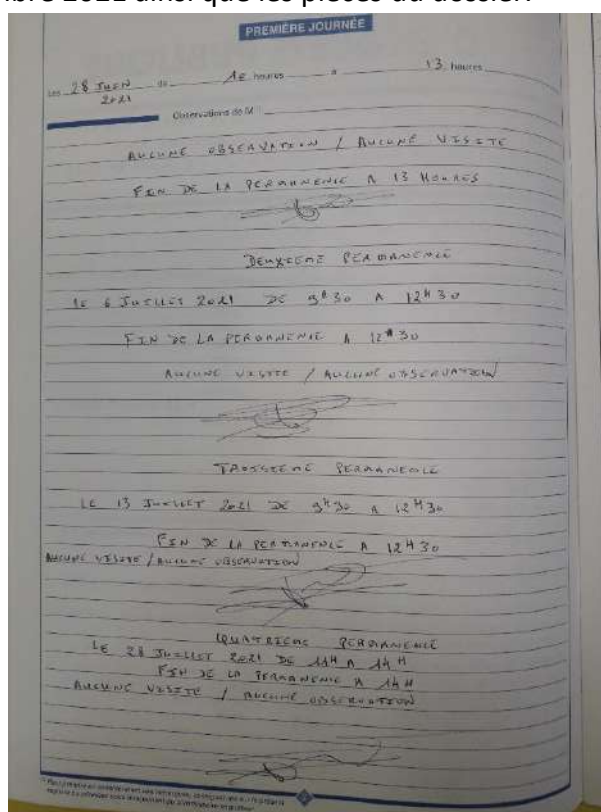 bre 2021 ainsi que les pièces du dossier.
PREMIÈRE JOURNÉE
Les 28 JUIN 2021 de 10 heures à 13 heures
Observations de M
AUCUNE OBSERVATION / AUCUNE VISITE
FIN DE LA PERMANENCE A 13 HEURES
DEUXIEME PERMANENCE
LE 6 JUILLET 2021 DE 9H30 A 12H30
FIN DE LA PERMANENCE A 12H30
AUCUNE VISITE / AUCUNE OBSERVATION
TROISIEME PERMANENCE
LE 13 JUILLET 2021 DE 9H30 A 12H30
FIN DE LA PERMANENCE A 12H30
AUCUNE VISITE / AUCUNE OBSERVATION
QUATRIEME PERMANENCE
LE 28 JUILLET 2021 DE 11H A 14H
FIN DE LA PERMANENCE A 14H
AUCUNE VISITE / AUCUNE OBSERVATION